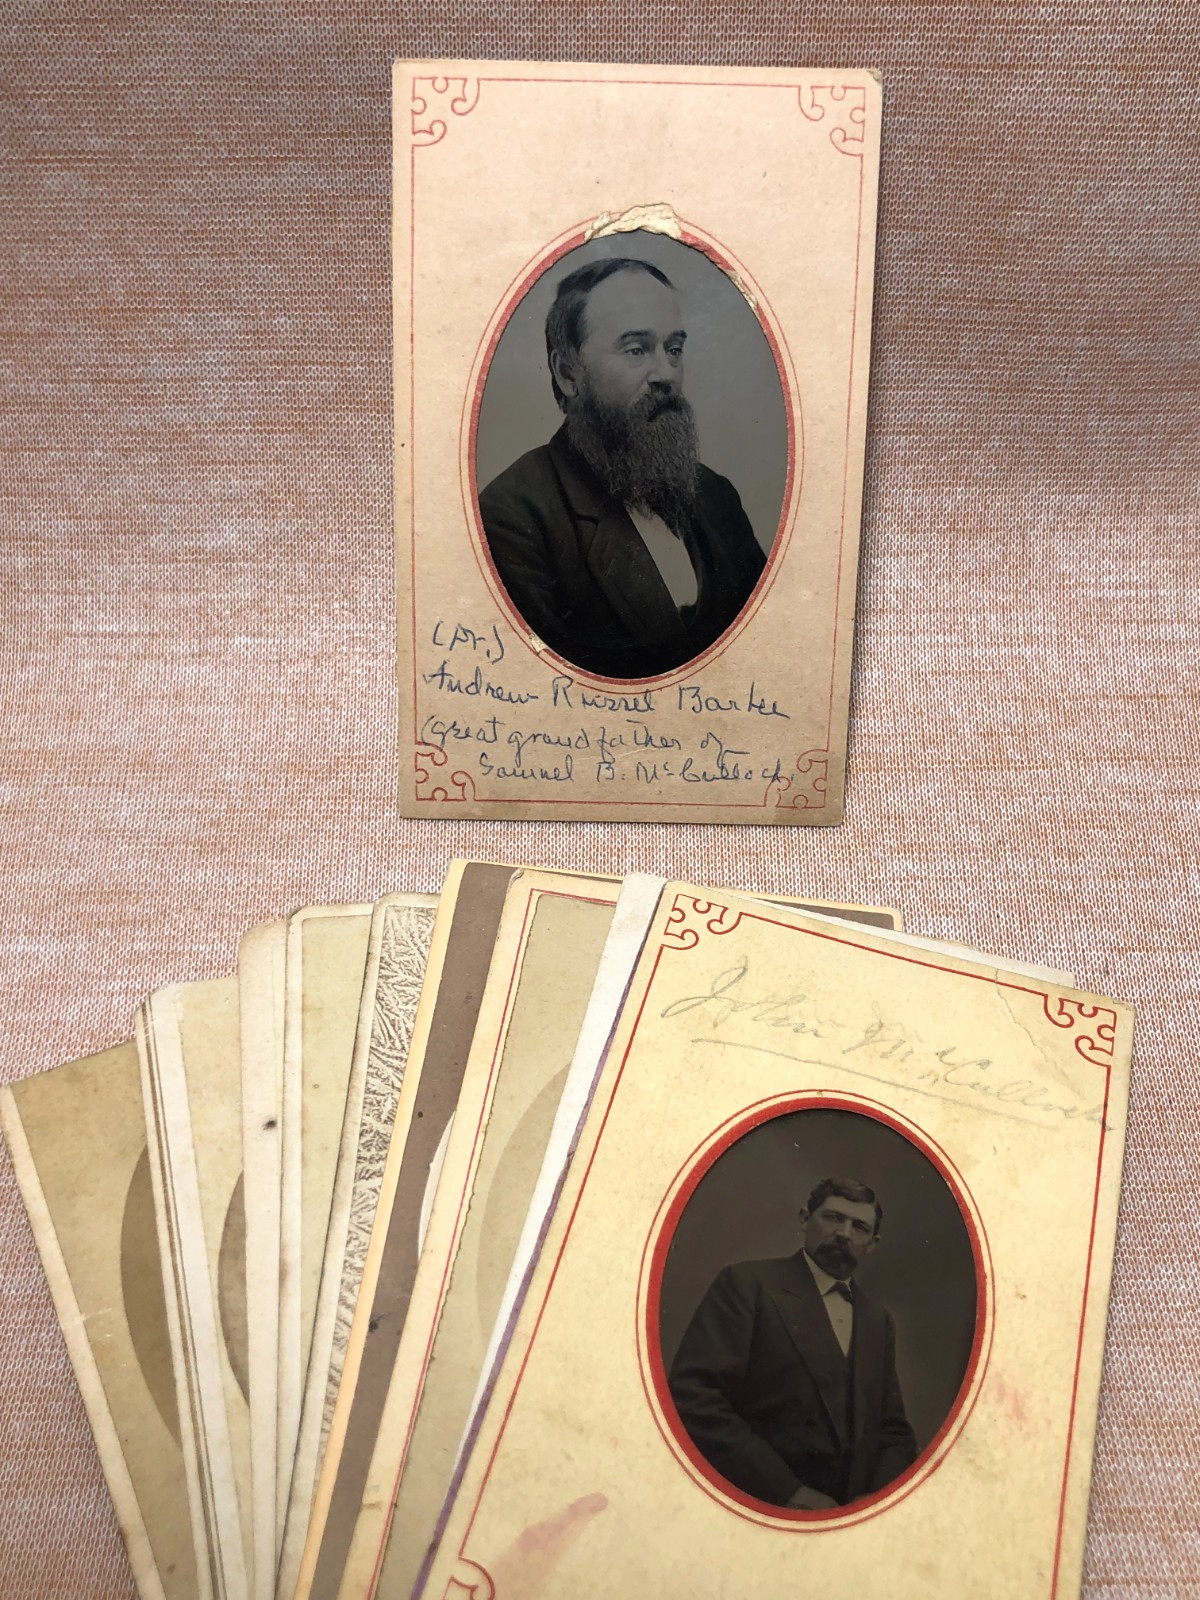 (Dr.)
Andrew Russel Barbee
(great grandfather of
Samuel B. McCulloch)
John McCulloch